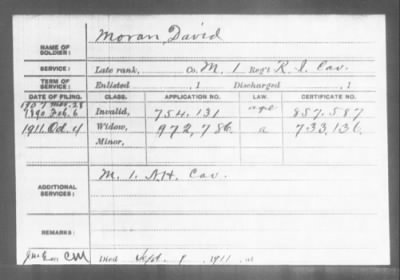 Moran, David
NAME OF SOLDIER:
SERVICE: Late rank, Co. M, 1 Reg't R. I. Cav.
TERM OF SERVICE: Enlisted , 1 Discharged , 1
DATE OF FILING. CLASS. APPLICATION NO. LAW. CERTIFICATE NO.
1907 Mar. 28 age
1890 Feb. 6 Invalid, 754,131 857,587
1911 Oct. 4 Widow, 972,786 a 733,136
Minor,
ADDITIONAL SERVICES: M. 1. N.H. Cav.
REMARKS:
Died Sept. 9, 1911, at